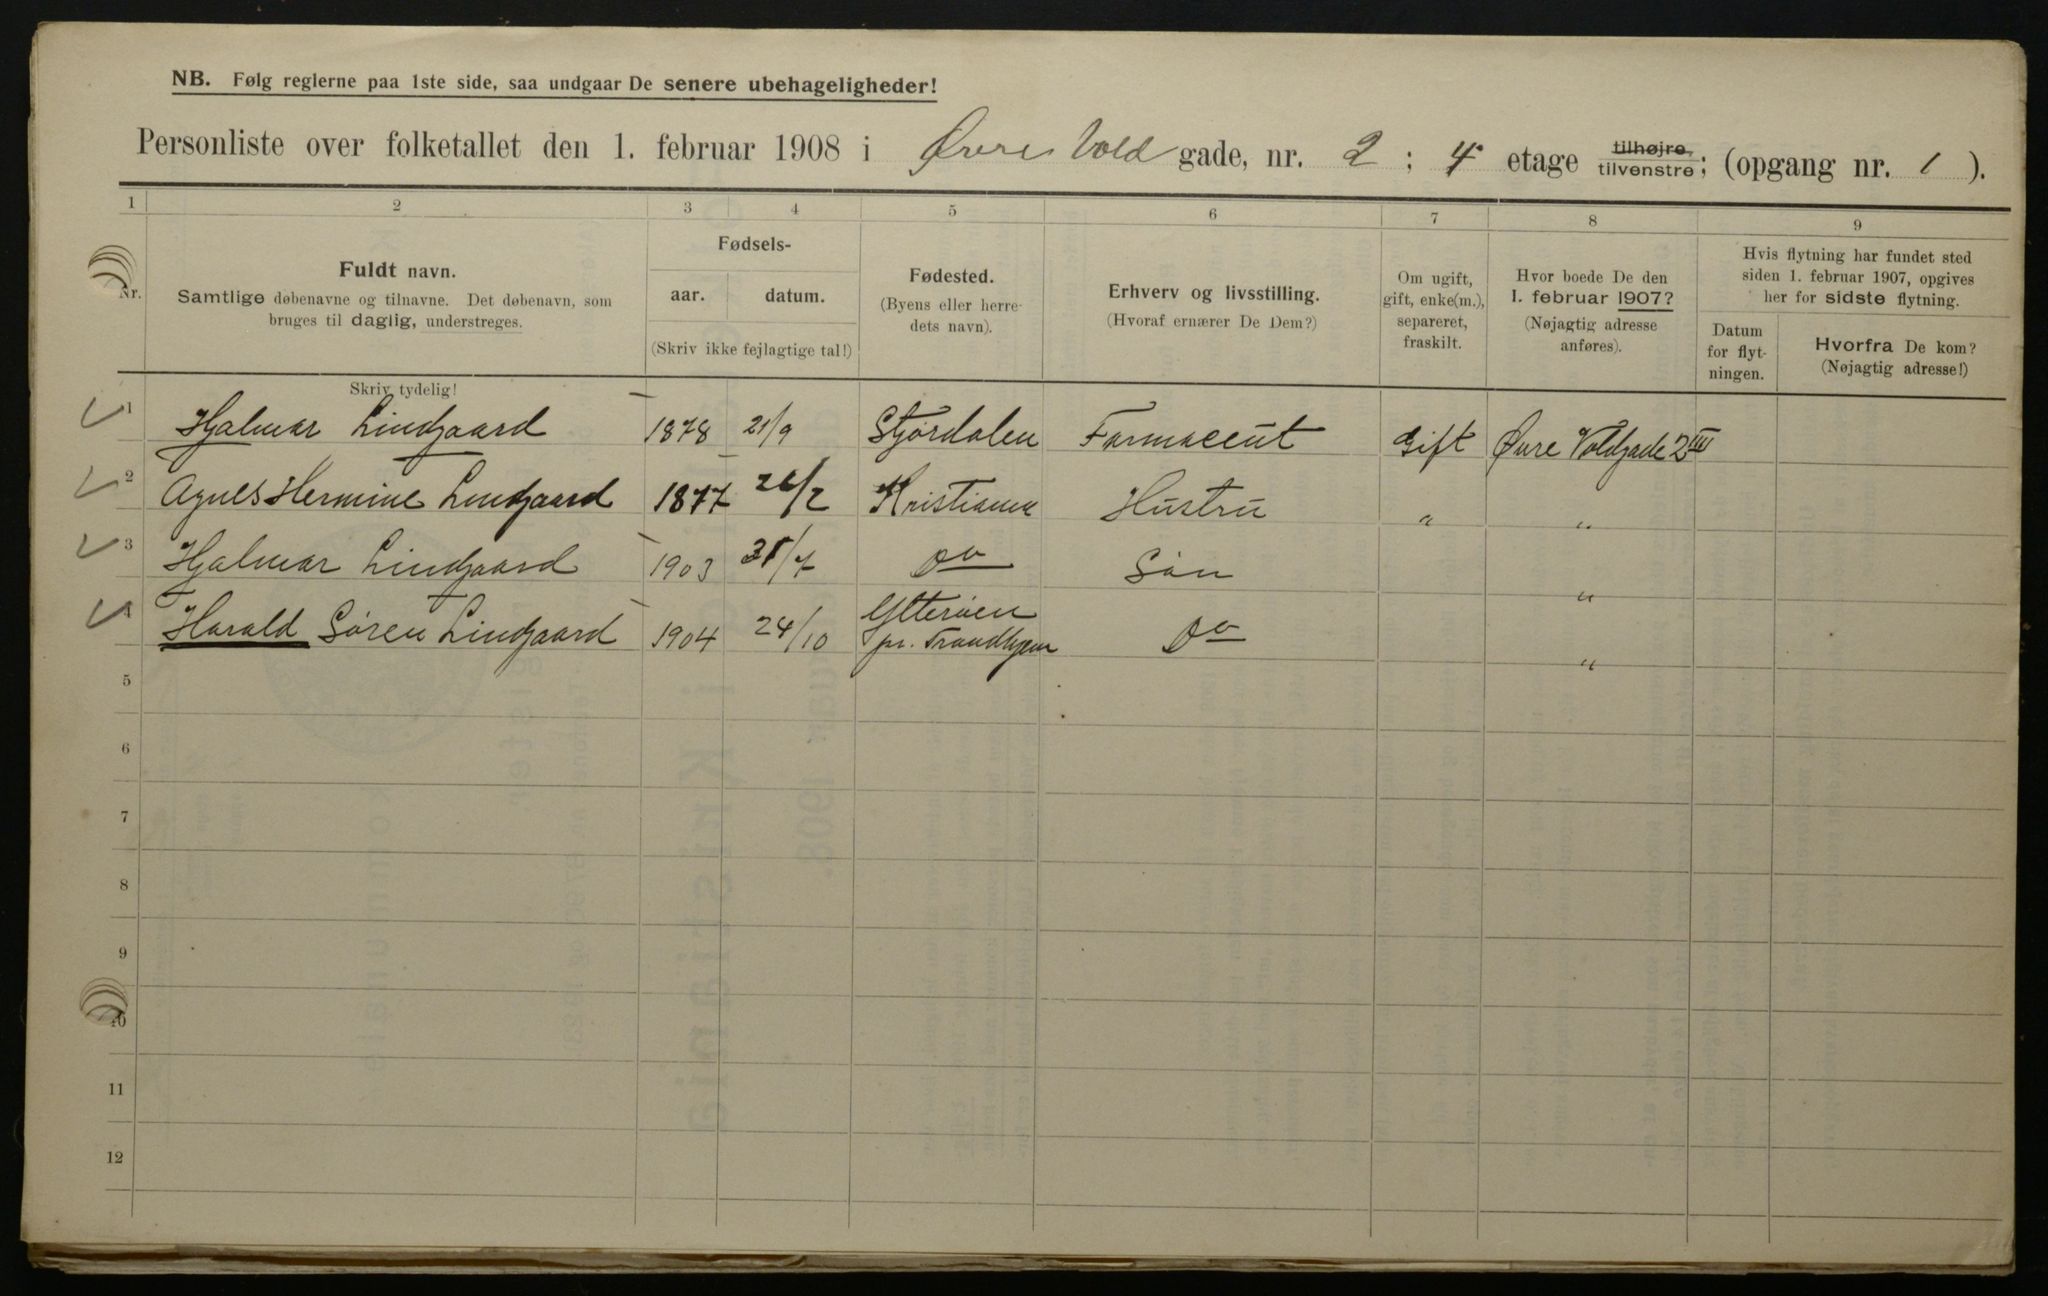 NB. Følg reglerne paa 1ste side, saa undgaar De senere ubehageligheder!
Personliste over folketallet den 1. februar 1908 i Øvre Vold gade, nr. 2 ; 4 etage tilhøjre, tilvenstre; (opgang nr. 1 ).
1 2 3 4 5 6 7 8 9
Nr.
Fuldt navn.
Samtlige døbenavne og tilnavne. Det døbenavn, som
bruges til daglig, understreges.
Skriv tydelig!
Fødsels-
aar. datum.
(Skriv ikke fejlagtige tal!)
Fødested.
(Byens eller herre-
dets navn).
Erhverv og livsstilling.
(Hvoraf ernærer De Dem?)
Om ugift,
gift, enke(m.),
separeret,
fraskilt.
Hvor boede De den
1. februar 1907?
(Nøjagtig adresse
anføres).
Hvis flytning har fundet sted
siden 1. februar 1907, opgives
her for sidste flytning.
Datum
for flyt-
ningen.
Hvorfra De kom?
(Nøjagtig adresse!)
1 Hjalmar Lindgaard 1878 21/9 Stjørdalen Farmaceut Gift Øvre Voldgade 2 IIII
2 Agnes Hermine Lindgaard 1877 26/2 Kristiania Hustru " "
3 Hjalmar Lindgaard 1903 31/7 Do Søn "
4 Harald Søren Lindgaard 1904 24/10 Ytterøen pr. Trondhjem Do "
5
6
7
8
9
10
11
12